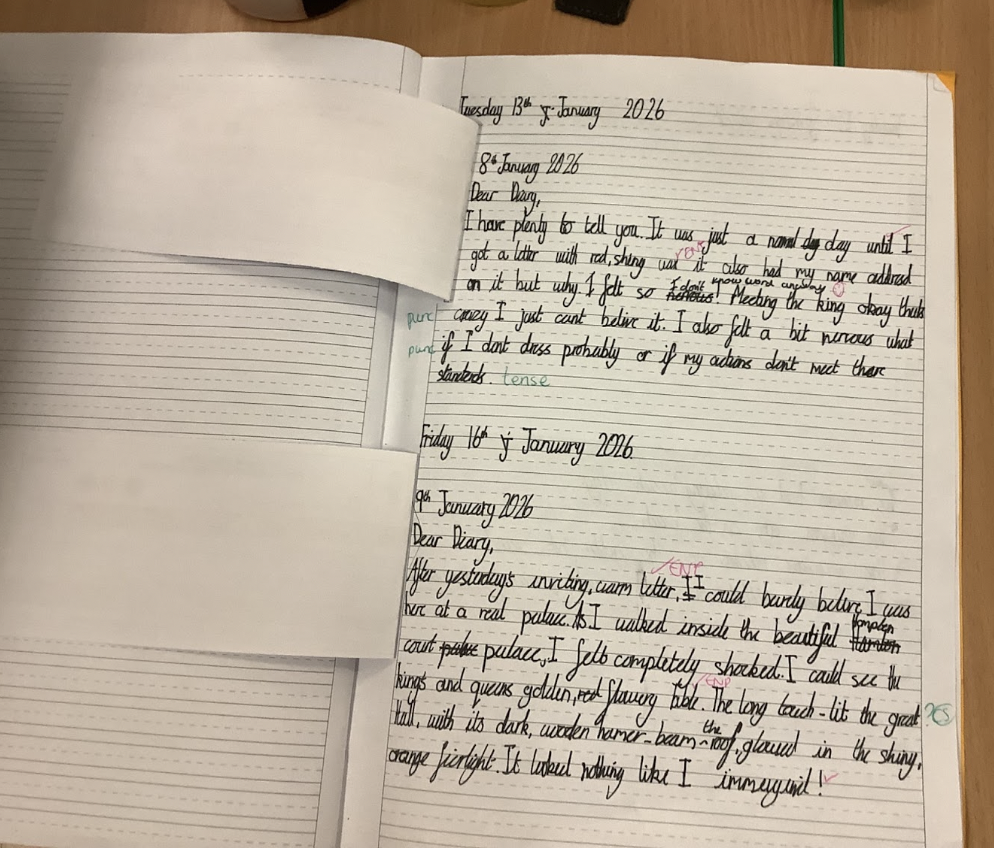 Tuesday 13th January 2026
8th January 2026
Dear Diary,
I have plenty to tell you. It was just a day until I
got a letter with red, shing wax it also had my name addred
ENP
on it but why. I felt so nervous! I don't know word anyway Meeting the king okay thats
punc crazy I just cant belive it. I also felt a bit nervous what
punc if I dont dress probably or if my actions don't meet there
standerds. tense
Friday 16th January 2026
9th January 2026
Dear Diary,
ENP
After yesterdays inviting, warm letter, I I could barely belive I was
here at a real palace. As I walked inside the beautiful Hampton
court palace palace, I felt completely shocked. I could see the
ENP
kings and queens golden, red flowery table. The long touch-lit the great
Hall, with its dark, wooden hamer-beam-the roof, glowed in the shiny,
orange fierlight. It looked nothing like I immegunid!